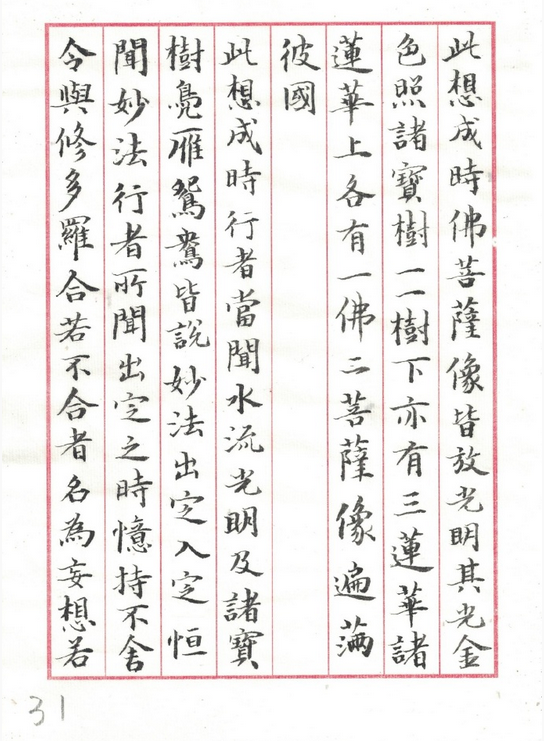 此想成時佛菩薩像皆放光明其光金
色照諸寶樹一一樹下亦有三蓮華諸
蓮華上各有一佛二菩薩像遍滿
彼國
此想成時行者當聞水流光明及諸寶
樹鳧雁鴛鴦皆說妙法出定入定恒
聞妙法行者所聞出定之時憶持不舍
令與修多羅合若不合者名為妄想若
31